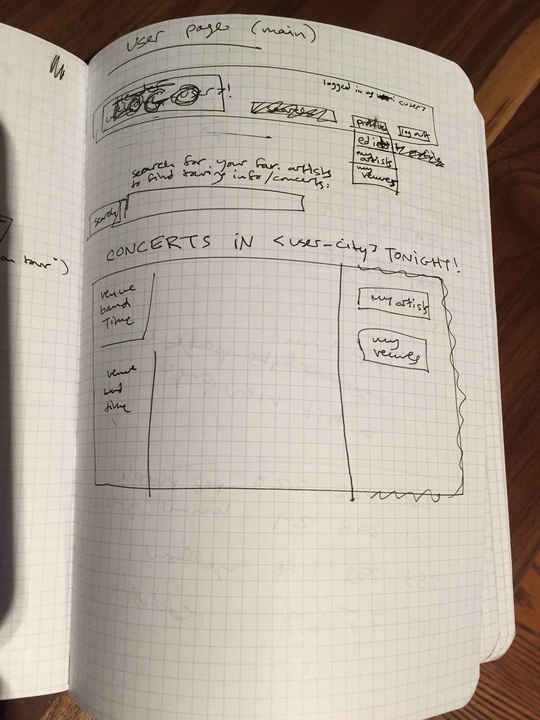 user page (main)
logged in as <user>
user>!
profile
log out
edit
my artists
my venues
search for your fav. artists
to find touring info/concerts:
search
CONCERTS IN <user-city> TONIGHT!
venue
band
Time
my artists
my
venues
venue
band
time
on tour")